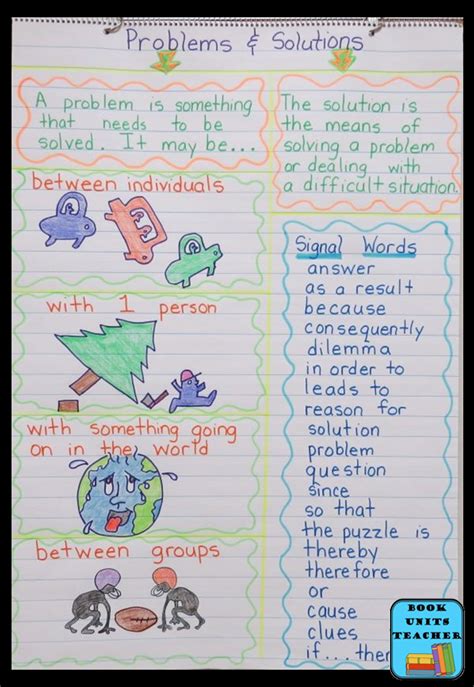 Problems & Solutions
A problem is something
that needs to be
solved. It may be...
The solution is
the means of
solving a problem
or dealing with
a difficult situation.
between individuals
with 1 person
with something going
on in the world
between groups
Signal Words
answer
as a result
because
consequently
dilemma
in order to
leads to
reason for
solution
problem
question
since
so that
the puzzle is
thereby
therefore
or
cause
clues
if...then
BOOK
UNITS
TEACHER